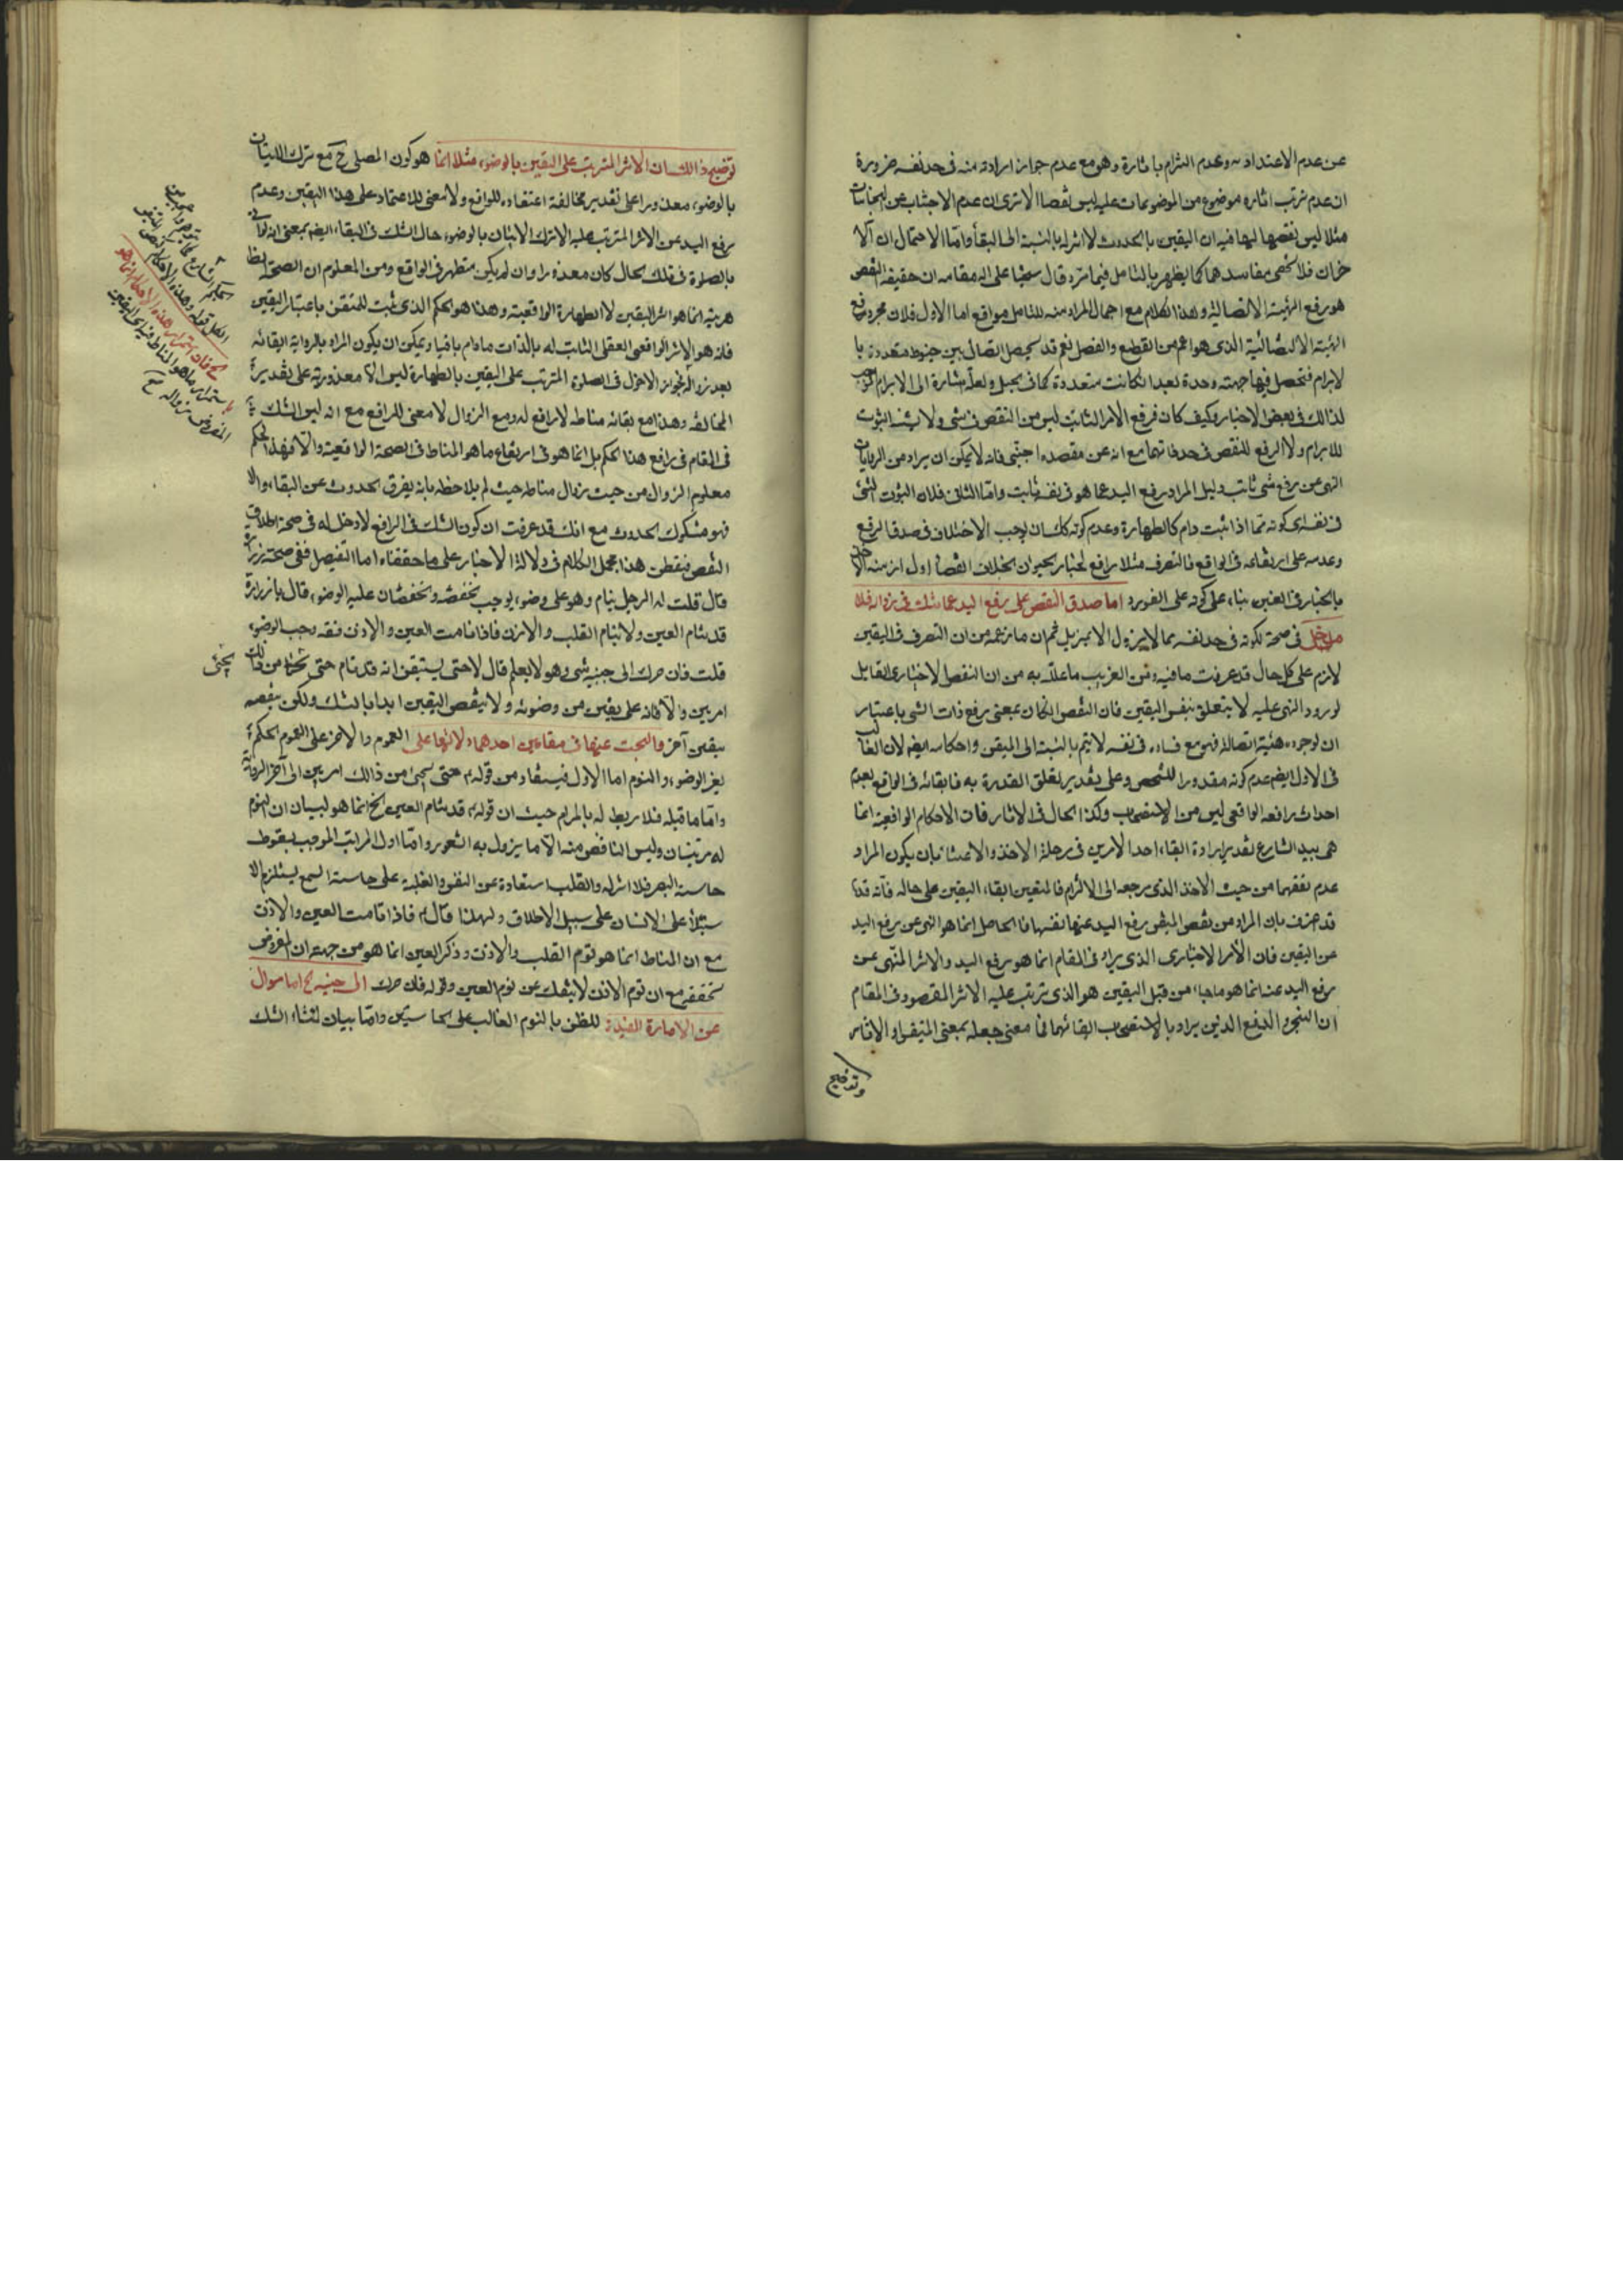 عن عدم الاعتداد به وعدم التزام باثاره وهو مع عدم جواز ارادته منه فى حد نفسه ضرورة
ان عدم ترتب اثار موضوع من الموضوعات عليه ليس نقضا الا ترى ان عدم الاجتناب عن النجاسات
مثلا ليس نقضها لها فيه ان اليقين بالحدوث لا اثر له بالنسبة الى البقاء واما الاحتمالان الآ
خران فلا يخفى مفاسدهما كما يظهر بالتامل فيما مر وقال شيخنا على الله مقامه ان حقيقة النقض
هو رفع الهيئة الاتصالية وهذا الكلام مع اجمال المراد منه للتامل مواقع اما الاول فلان مجرد رفع
الهيئة الاتصالية الذى هو اعم من القطع والفصل نعم قد يحصل اتصال بين خيوط متعددة با
لابرام فتحصل فيها جهته وحدة بعد ان كانت متعددة كما فى الحبل ولعله اشارة الى الابرام
لذالك فى بعض الاخبار وكيف كان فرفع الامر الثابت ليس من النقض فى شئ ولا يثبت الثبوت
للابرام ولا الرفع للنقض فى حد ذاتهما مع انه عن مقصده اجنبى فانه لا يمكن ان يراد من الروايات
النهى عن رفع شئ ثابت دليل المراد رفع اليد عما هو فى نفسه ثابت واما الثانى فلان الثبوت لشئ
فى نفسه اى كونه مما اذا ثبت دام كالطهارة وعدم كونه كك لا يوجب الاختلاف فى صدق الرفع
وعدمه على ارتفاعه فى الواقع فالتصرف مثلا رافع لخيار الحيوان بخلاف انقضاء اول ازمنة
بالخيار فى الغبن بناء على كونه على الفور و اما صدق النقض على رفع اليد عما شك فى زواله فلا
مدخل فى صحة لكونه فى حد نفسه بما لا يزول الا بمزيل ثم ان ما زعمه من ان التصرف فى اليقين
لازم على كل حال قد عرفت ما فيه ومن الغريب ما علله به من ان النقض الاختيارى القابل
لورود النهى عليه لا يتعلق بنفس اليقين فان النقض ان كان بمعنى رفع ذات الشئ باعتبار
ان لوجوده هيئة اتصاله فهو مع فساده فى نفسه لا يتم بالنسبة الى المتيقن واحكامه ايضا لان الغالب
فى الاول ايضا عدم كونه مقدورا للشخص وعلى تقدير تعلق القدرة به فابقائه فى الواقع بعدم
احداث رافعه الواقعى ليس من الاستصحاب وكذا الحال فى الاثار فان الاحكام الواقعية انما
هى بيد الشارع تقدير ارادة ابقاء احد الامرين فى مرحلة الاخذ والاعتناء بان يكون المراد
عدم نقضهما من حيث الاخذ الذى مرجعه الى الالتزام فاليقين ابقاء اليقين على حاله فانه
قد عرف بان المراد من نقض المتيقن رفع اليد عنها نفسها فالحاصل انما هو النهى عن رفع اليد
عن اليقين فان الأمر الاختيارى الذى يراد فى المقام انما هو رفع اليد والاثر المنهى عن
رفع اليد عنه انما هو ما جاء من قبل اليقين هو الذى ترتب عليه الاثر المقصود فى المقام
ان التنجز والدفع الذين يراد بالاستصحاب ابقائهما فما معنى جعله بمعنى المتيقن او الاثار
وتوضيح
توضيح ذالك ان الاثر المترتب على اليقين بالوضوء مثلا انما هو كون المصلى ح مع ترك الاتيان
بالوضوء معذورا على تقدير مخالفة اعتقاده للواقع ولا معنى للاعتماد على هذا اليقين وعدم
رفع اليد عن الاثر المترتب عليه الا ترك الاتيان بالوضوء حال الشك فى البقاء ايضا بمعنى انه لو اتى
بالصلوة فى تلك الحال كان معذورا وان لم يكن متطهر فى الواقع ومن المعلوم ان الصحة الظا
هرية انما هو اثر اليقين لا الطهارة الواقعية وهذا هو الحكم الذى ثبت للمتيقن باعتبار اليقين
فانه هو الاثر الواقعى العقلى الثابت له بالذات ما دام باقيا ويمكن ان يكون المراد بالرواية ابقائه
بعد زواله فجواز الدخول فى الصلوة المترتب على اليقين بالطهارة ليس الا معذوريته على تقدير
المخالفة وهذا مع بقائه مناطه لا رافع له ومع الزوال لا معنى للرافع مع انه ليس الشك
فى المقام فى رافع هذا الحكم بل انما هو فى ارتفاع ما هو المناط فى الصحة الواقعية والا فهذا الحكم
معلوم الزوال من حيث زوال مناطه حيث لم يلاحظه بانه يفرق الحدوث عن البقاء والا
فهو مشكوك الحدوث مع انك قد عرفت ان كون الشك فى الرافع لا دخل له فى صحة اطلاق
النقض فتفطن هذا مجمل الكلام فى دلالة الاخبار على ما حققناه اما التفصيل ففى صحة زرارة
قال قلت له الرجل ينام وهو على وضوء ايوجب الخفقة والخفقتان عليه الوضوء قال يا زرارة
قد تنام العين ولا ينام القلب والاذن فاذا نامت العين والاذن فقد وجب الوضوء
قلت فان حرك الى جنبه شئ وهو لا يعلم قال لا حتى يستيقن انه قد نام حتى يجئ من ذالك
يجئ
امر بين والا فانه على يقين من وضوئه ولا ينقض اليقين ابدا بالشك ولكن ينقضه
بيقين آخر والبحث عنها فى مقامين احدهما دلالتها على العموم والاخر على العموم الحكم
بغير الوضوء والنوم اما الاول فيستفاد من قوله ع حتى يجئ من ذالك امر بين الى آخر الرواية
واما ما قبله فلا ربط له بالمرام حيث ان قوله ع قد تنام العين الخ انما هو لبيان ان النوم
له مرتبتان وليس الناقض منه الا ما يزول به الشعور واما اول المراتب الموجب لسقوط
حاسة البصر فلا اثر له والقلب استعارة عن النفس والغلبة على حاسة السمع يستلزم الا
ستيلاء على الانسان على سبيل الاطلاق ولهذا قال ع فاذا نامت العين والاذن
مع ان المناط انما هو نوم القلب والاذن وذكر العين انما هو من جهة ان المفروض
تحققه مع ان نوم الاذن لا ينفك عن نوم العين وقوله فان حرك الى جنبه الخ اما سوال
عن الامارة المفيدة للظن بالنوم الغالب على الحاستين واما بيان لمنشاء الشك